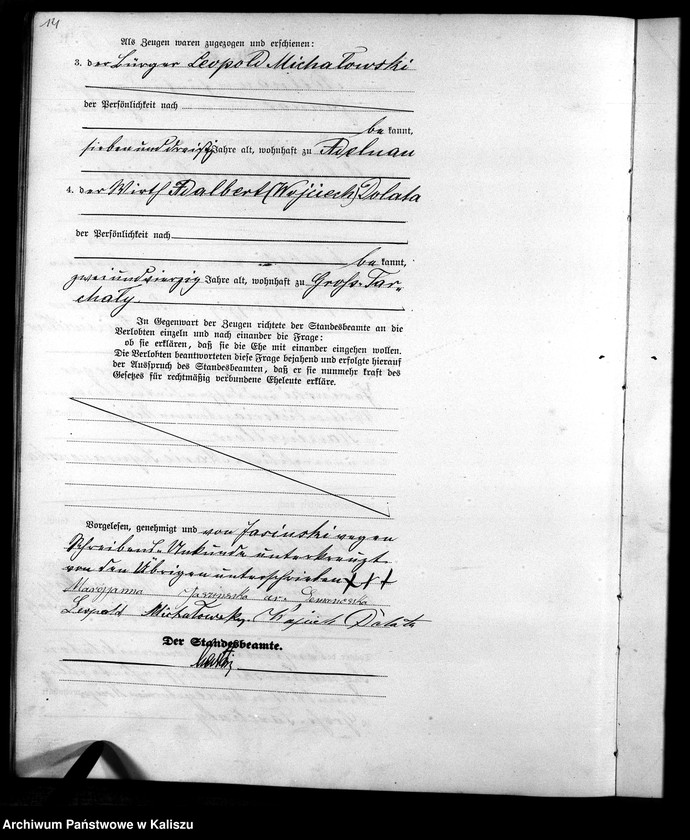 14
Als Zeugen waren zugezogen und erschienen:
3. der Bürger Leopold Michałowski
der Persönlichkeit nach
be kannt,
sieben und dreißig Jahre alt, wohnhaft zu Adelnau
4. der Wirth Adalbert (Wojciech) Dolata
der Persönlichkeit nach
be kannt,
zwei und vierzig Jahre alt, wohnhaft zu Groß-Tar-
chaly.
In Gegenwart der Zeugen richtete der Standesbeamte an die
Verlobten einzeln und nach einander die Frage:
ob sie erklären, daß sie die Ehe mit einander eingehen wollen.
Die Verlobten beantworteten diese Frage bejahend und erfolgte hierauf
der Ausspruch des Standesbeamten, daß er sie nunmehr kraft des
Gesetzes für rechtmäßig verbundene Eheleute erkläre.
Vorgelesen, genehmigt und von Jasinski wegen
Schreibens-Unkunde unterkreuzt
von den Übrigen unterschrieben +++
Maryjanna
Leopold Michałowsky. Wojciech Dolata
Der Standesbeamte.
Archiwum Państwowe w Kaliszu